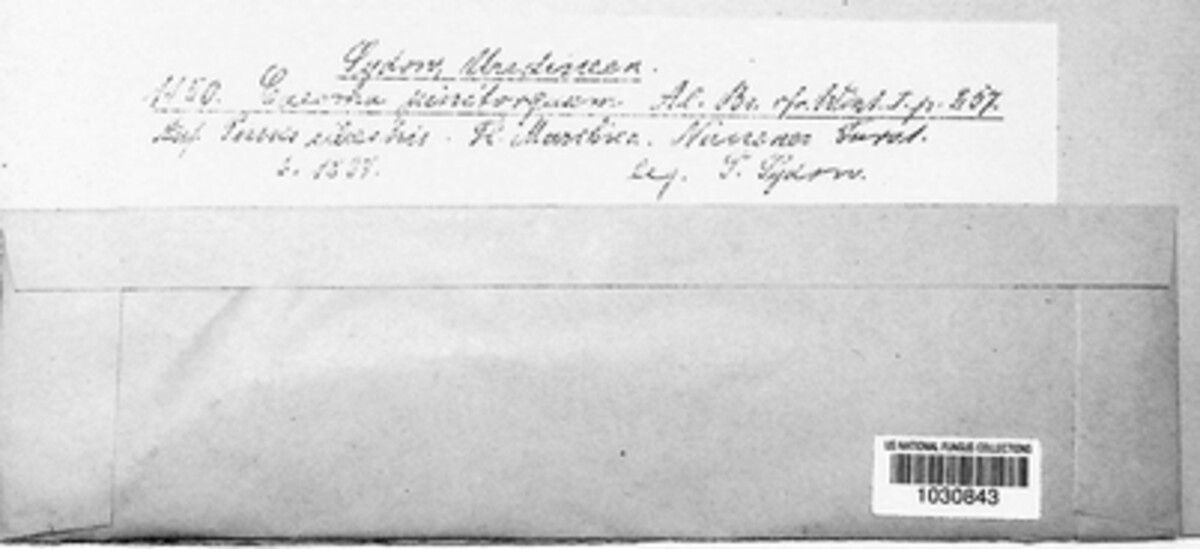 Sydow, Uredineen.
1150. Caeoma pinitorquum Al. Br. cfr. Wint. I. p. 257.
Auf Pinus silvestris. Pr. Marchica. Forst.
6. 1897. leg. P. Sydow.
US NATIONAL FUNGUS COLLECTIONS
1030843